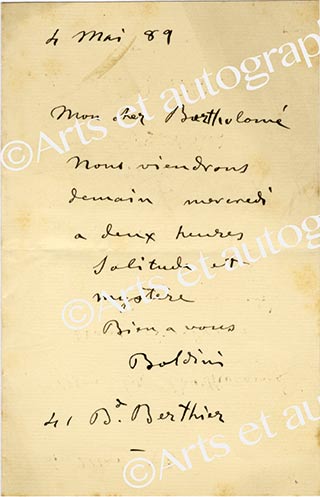 4 Mai 89
Mon cher Bartholomé
Nous viendrons
demain mercredi
a deux heures
Solitude et
mystère
Bien a vous
Boldini
41 Bd. Berthier
©Arts et autograph
©Arts et autograph
©Arts et autograph
©Arts et autograph